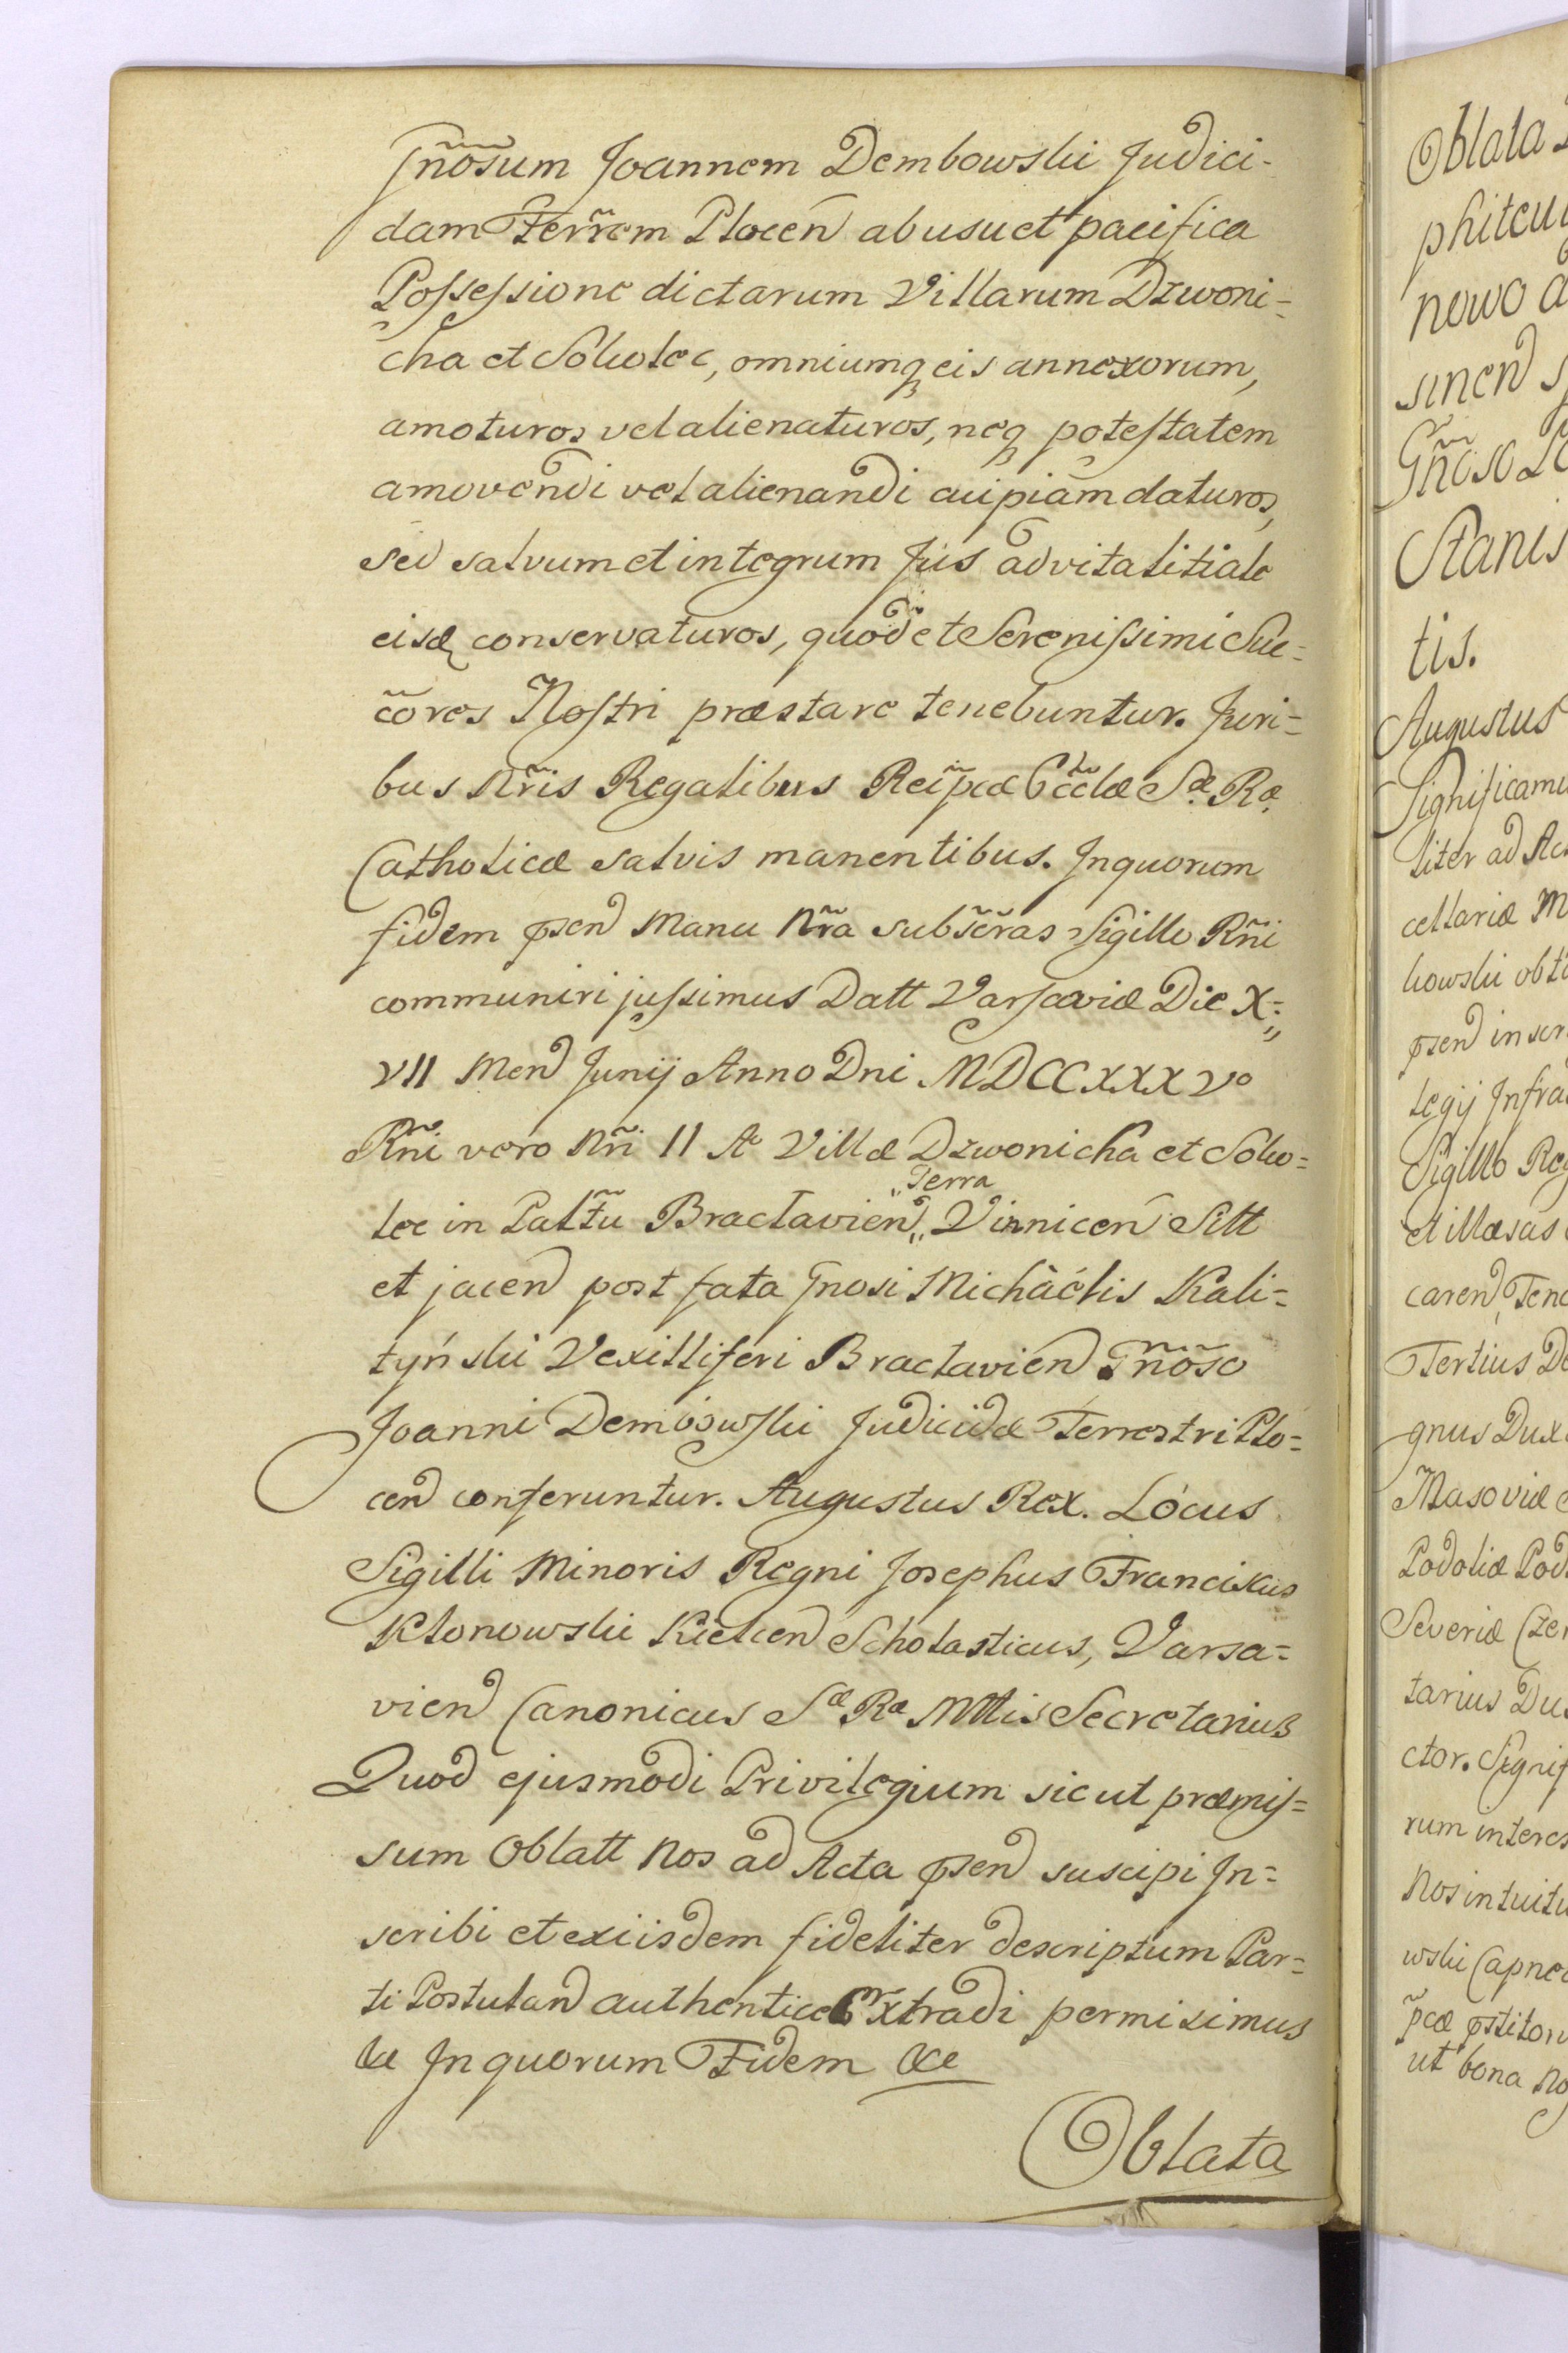 Gn̄osum Joannem Dembowski Judici-
dam Terr̃em Plocen̄ ab usu et pacifica
Possessione dictarum Villarum Dzwoni=
cha et Sokolec, omniumq̨ eis annexorum,
amoturos vel alienaturos, neq̨ potestatem
amovendi vel alienandi cuipiam daturos,
sed salvum et integrum Jus advitalitiale
eisd conservaturos, quod et Serenissimi Suc=
c̃ores Nostri præstare tenebuntur. Juri=
bus Nr̃is Regalibus Reip̃cæ Ecc̃læ Sæ. Ræ.
Catholicæ salvis manentibus. In quorum
fidem psen̄ Manu Nr̃a subsc̃ras Sigillo Rñi
communiri jussimus Datt Varsaviæ Die X=
VII Men̄ Junij Anno Dni MDCCXXXVo
Rñi vero Nr̃i II Ao Villæ Dzwonicha et Soko=
lec in Palt̃u Braclavien̄ „Terra„ Vinnicen̄ Sitt
et jacen̄ post fata Gnosi Michaélis Kali=
tyński Vexilliferi Braclavien̄ Gñõso
Joanni Dembowski Judicidæ Terrestri Plo=
cen̄ conferuntur. Augustus Rex. Locus
Sigilli Minoris Regni Josephus Franciscus
Klonowski Kielcen̄ Scholasticus, Varsa=
vien̄ Canonicus Sæ Ræ Mttis Secretarius
Quod ejusmodi Privilegium sicut præmis=
sum Oblatt Nos ad Acta psen̄ suscipi In=
scribi et ex iisdem fideliter descriptum Par=
ti Postulan̄ authentice Extradi permisimus
&c In quorum Fidem &c
Oblata
Oblata
phiteu
nowo
sinen̄
Gñoso
Stanis
tis.
Augustus
Significamu
liter ad Ac
cellariæ M
kowski obt
psen̄ in scr
legij Infra
Sigillo Reg
et illæsas
caren̄ Ten
Tertius De
gnus Dux
Masoviæ
Podoliæ Pod
Severiæ Czer
tarius Du
ctor. Signif
rum interes
Nos intuitu
wski Capne
p̃cæ pstiton
ut bona No